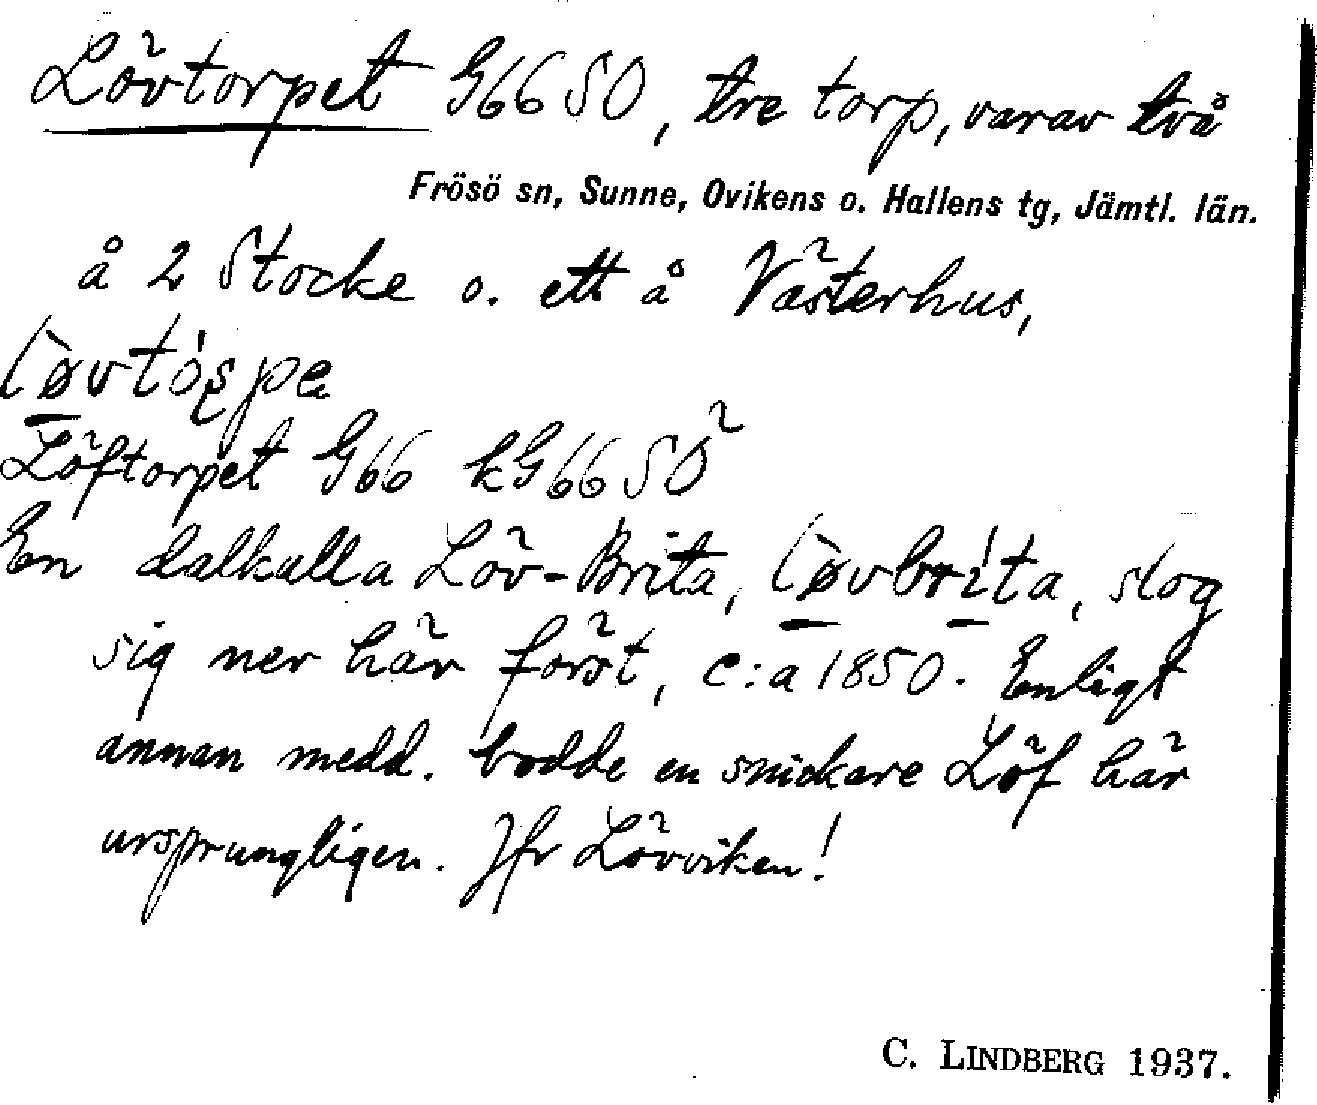 Lövtorpet G66 SO, tre torp, varav två
Frösö sn, Sunne, Ovikens o. Hallens tg, Jämtl. län.
å 2 Stocke o. ett å Västerhus,
Löftorpet G66 kG66 SO
En dalkulla Löv-Brita, slog
sig ner här först, c:a 1850. Enligt
annan medd. bodde en snickare Löf här
ursprungligen. Jfr Lövviken!
C. LINDBERG 1937.